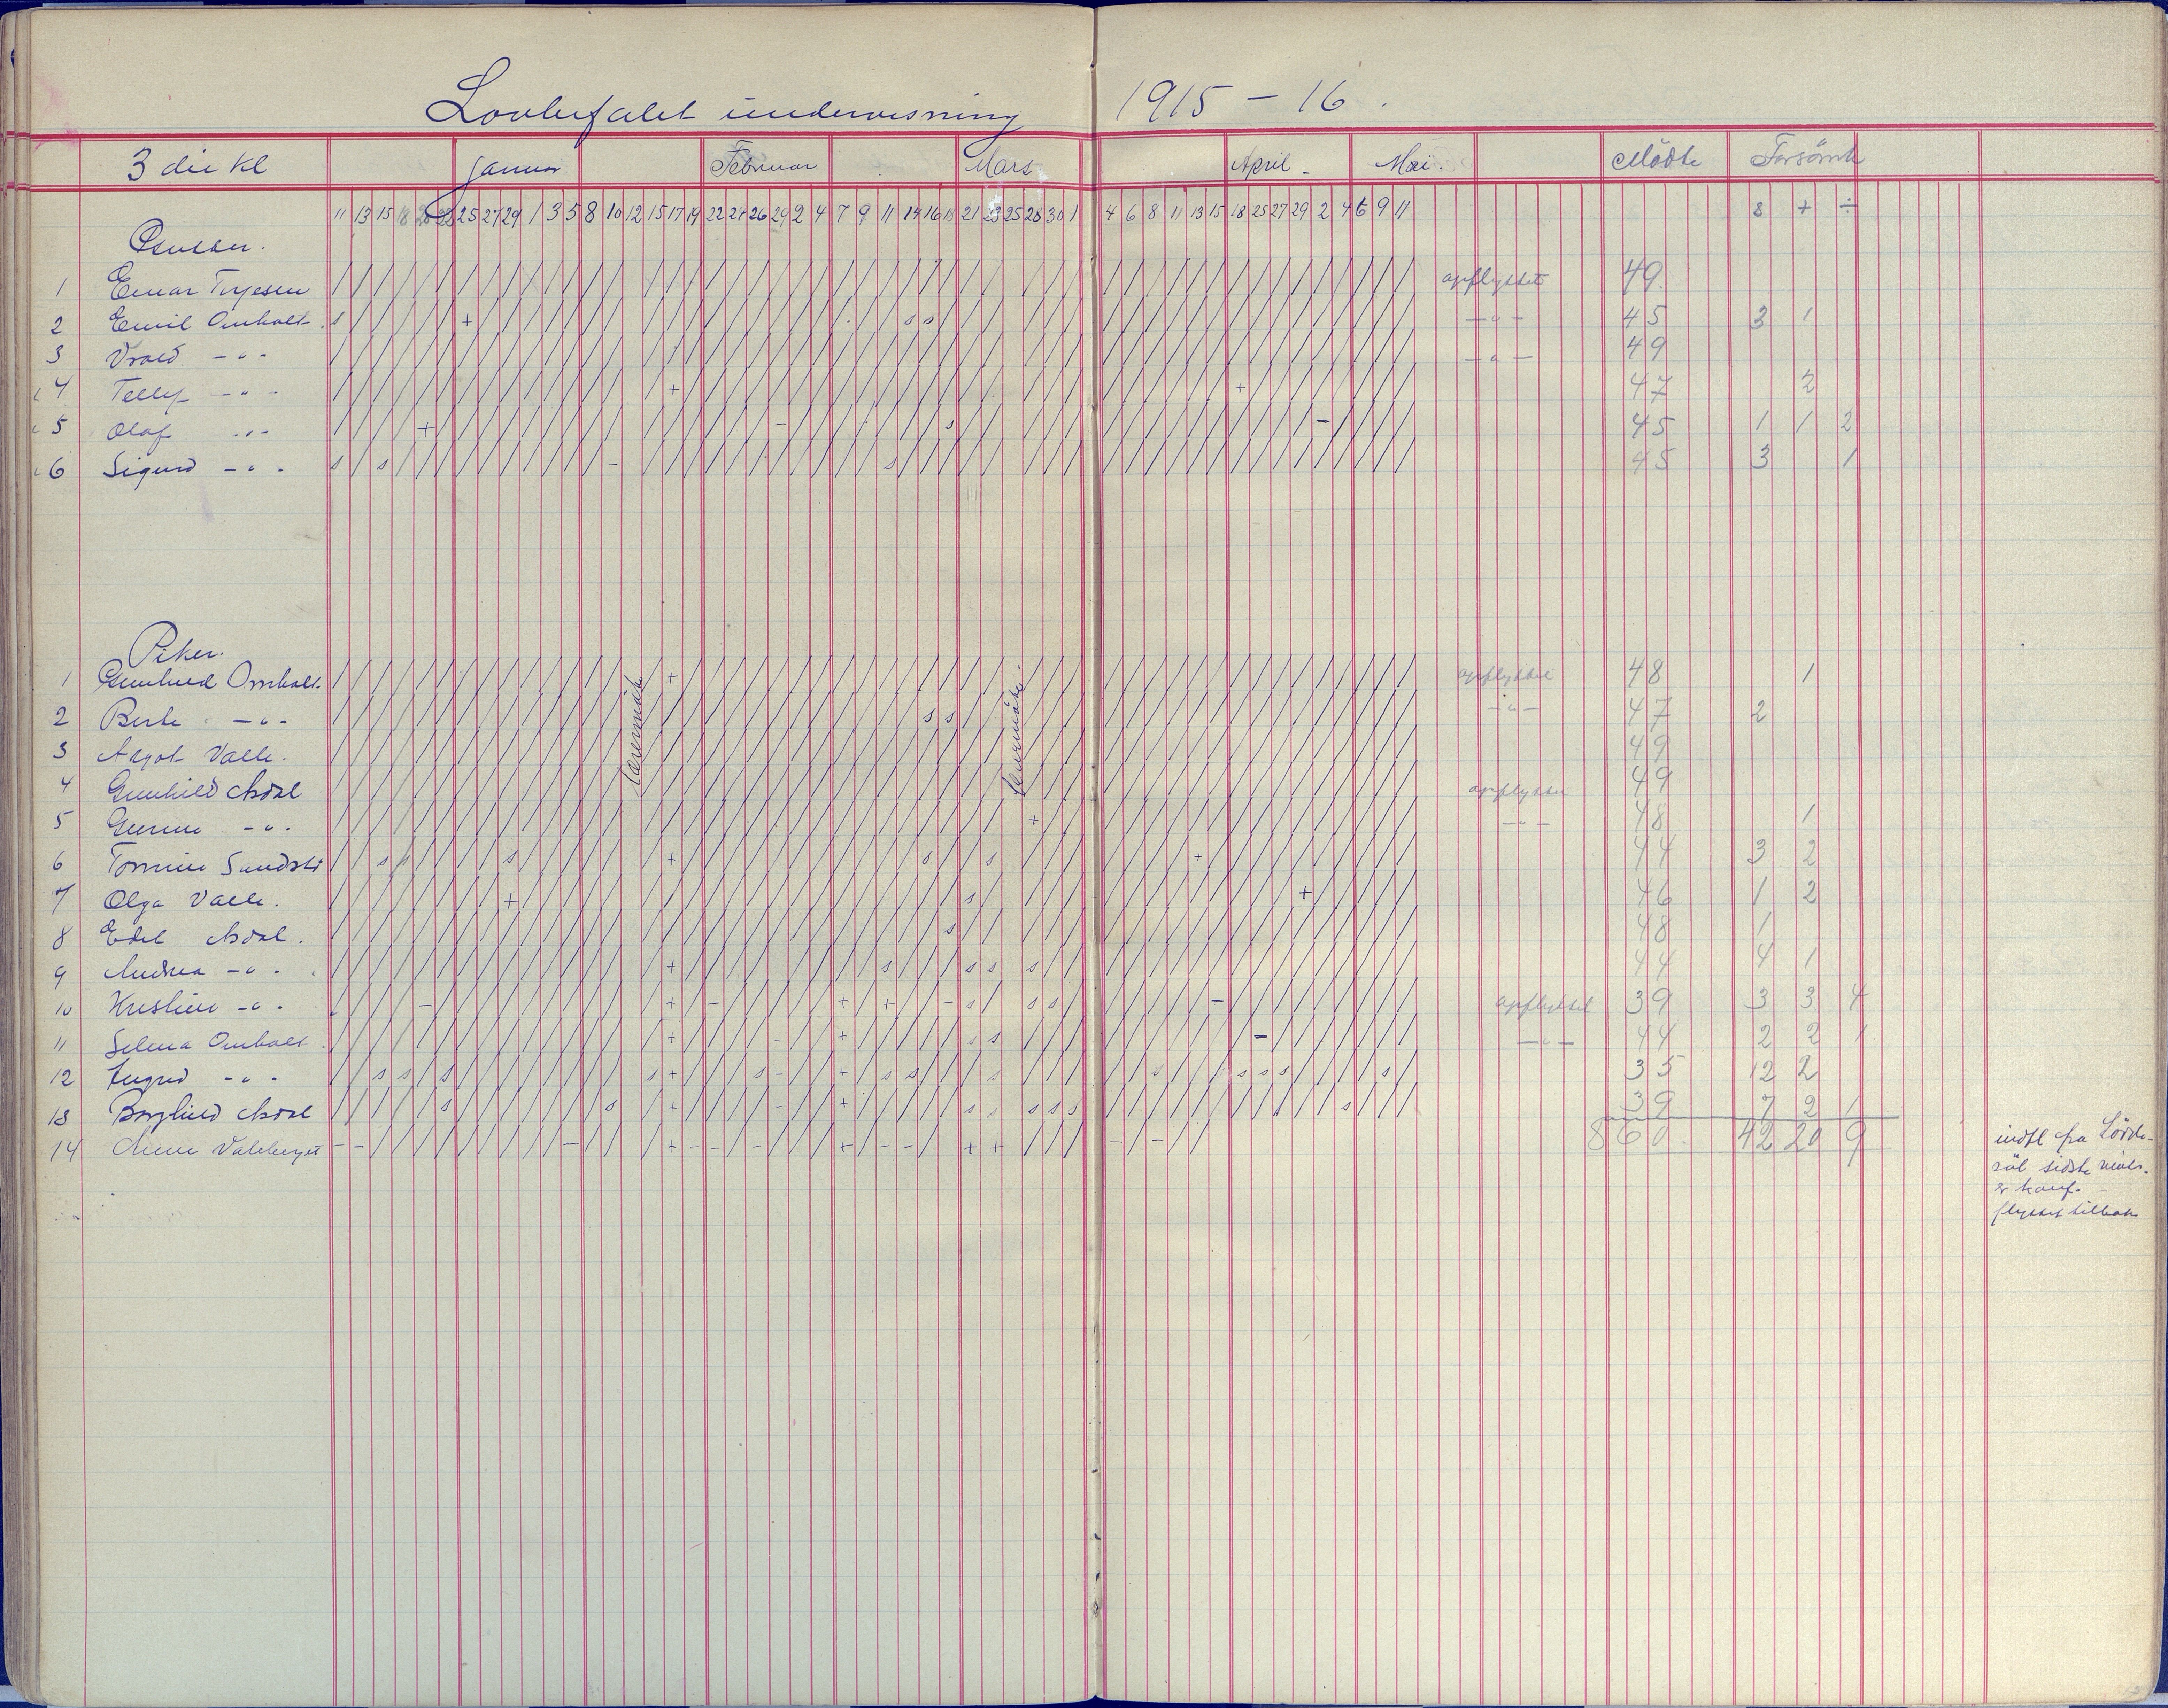 Lovbefalet undervisning 1915 - 16.
3 die kl Januar Februar Mars April - Mai. Mödte Forsömt
11 13 15 18 20 22 25 27 29 1 3 5 8 10 12 15 17 19 22 24 26 29 2 4 7 9 11 14 16 18 21 23 25 28 30 1 4 6 8 11 13 15 18 25 27 29 2 4 6 9 11 s + ÷
Gutter.
1 Einar Terjesen opflyttet 49
2 Emil Omholt s + s s - " - 45 3 1
3 - " - - " - 49
4 Tellef - " - + + 47 2
5 Olaf - " - + - s - 45 1 1 2
6 Sigurd - " - s s - s 45 3 1
Piker.
1 Gunhild Omholt + opflyttet 48 1
2 Berte - " - s s - " - 47 2
3 Valle. 49
4 Gunhild opflyttet 49
5 - " - + - " - 48 1
6 s s + s s + 44 3 2
7 Olga Valle. + s + 46 1 2
8 Edel s 48 1
9 Andrea - " - + s s s s 44 4 1
10 Kristine - " - - + - + + - s s s - opflyttet 39 3 3 4
11 Selma Omholt + - + s s - - " - 44 2 2 1
12 Ingrid - " - s s s s + s - + s s s s s s s s 35 12 2
13 Borghild s s + - + s s s s s s 39 7 2 1
860 42 20 9
14 - - - + - - - + - - - + + - -
indfl fra
sidste
flyttet tilbake